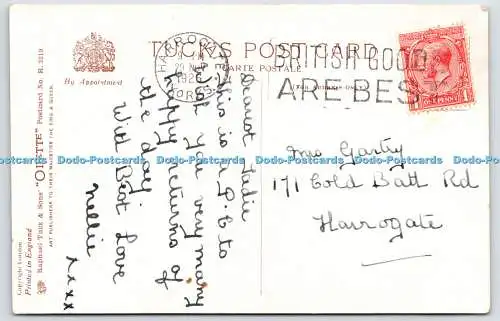 TUCK'S POST CARD
CARTE POSTALE
By Appointment
HARROGATE
BRITISH GOODS
ARE BEST
ONE PENNY
Copyright London
Printed in England
Raphael Tuck & Sons' "OILETTE" Postcard No. R. 3219
ART PUBLISHERS TO THEIR MAJESTIES THE KING & QUEEN
Dearest
This is a p.c to
wish you very many
happy returns of
the day.
With Best Love
Nellie
xxxx
Mrs
171 Cold Bath Rd
Harrogate
Dodo-Postcards Dodo-Postcards Dodo-Postcards Dodo-Postcards Dodo-Postcards Dodo-Postcards